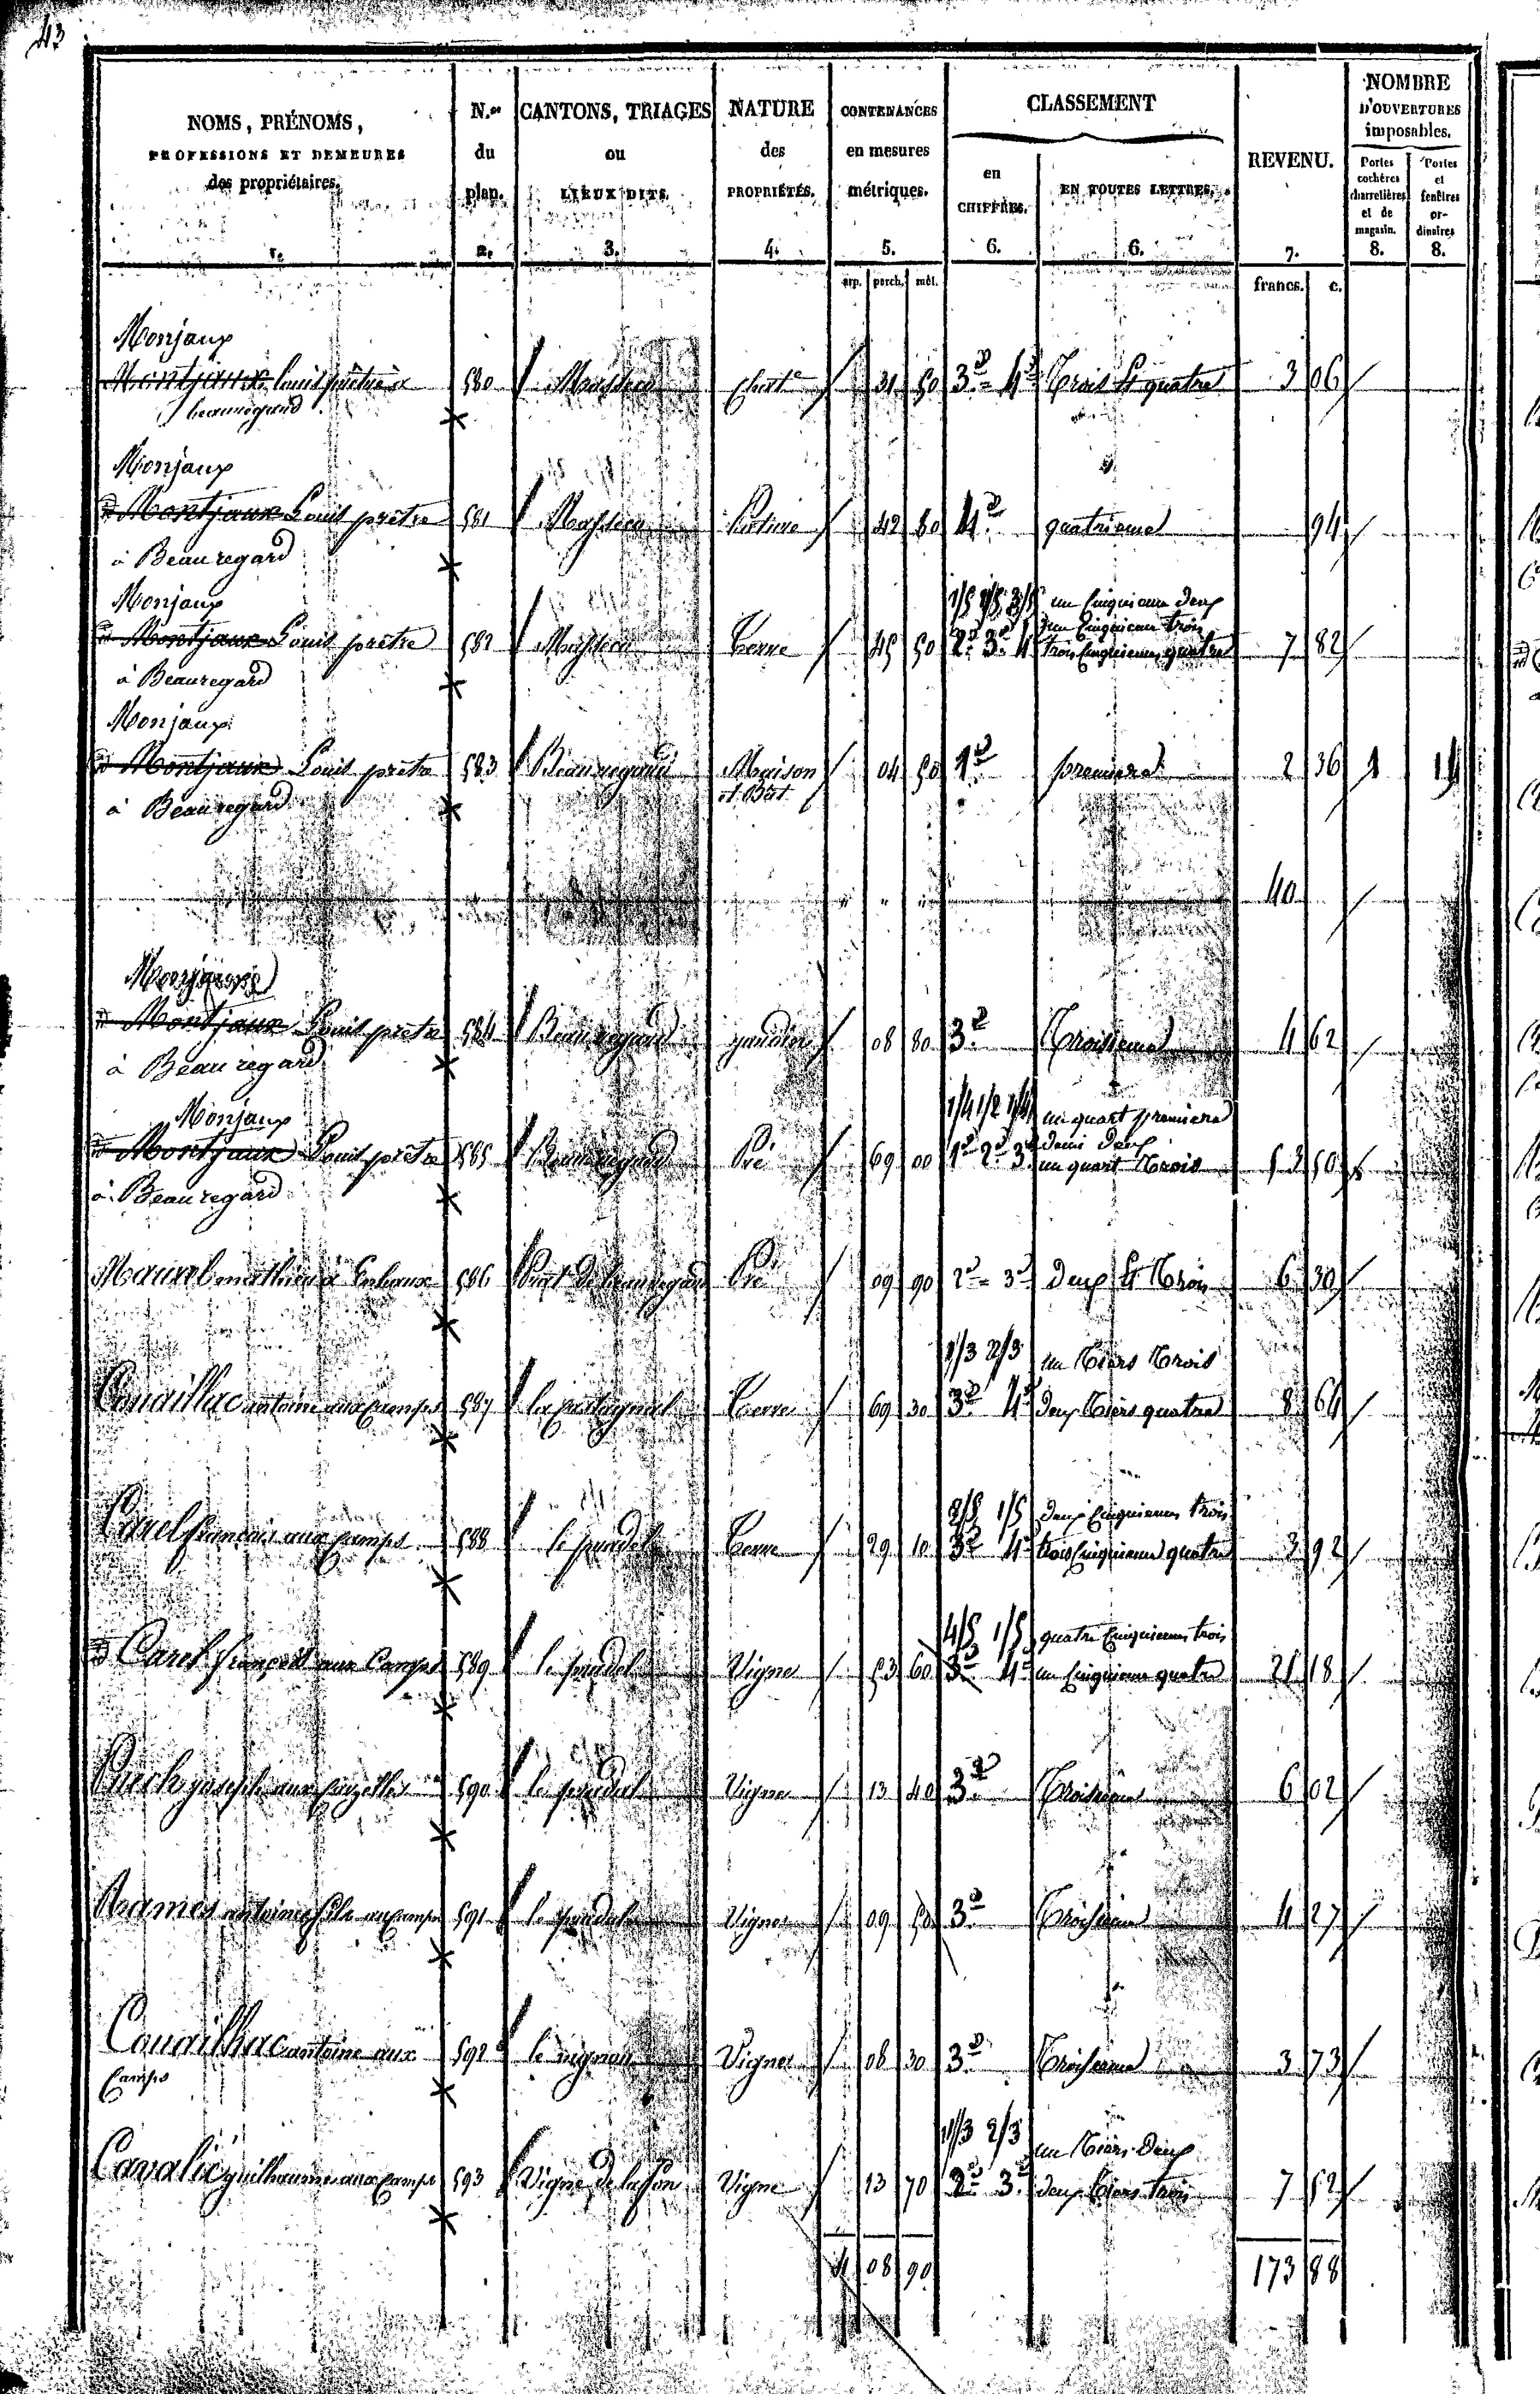 43
NOMS, PRÉNOMS,
PROFESSIONS ET DEMEURES
des propriétaires.
1.
N.os
du
plan.
2.
CANTONS, TRIAGES
ou
LIEUX DITS.
3.
NATURE
des
PROPRIÉTÉS.
4.
CONTENANCES
en mesures
métriques.
5.
arp. perch. mèt.
CLASSEMENT
en
CHIFFRES.
6.
EN TOUTES LETTRES.
6.
REVENU.
7.
francs. c.
NOMBRE
D'OUVERTURES
imposables.
Portes
cochères
charretières
et de
magasin.
8.
Portes
et
fenêtres
or-
dinaires
8.
Monjaux
Montjaux Louis prêtre à 580 31 50 3e = 4e Trois et quatre 3 06
beauregard
Monjaux
Montjaux Louis prêtre 581 Pature 42 80 4e quatrieme 94
à Beauregard
Monjaux 1/5 1/5 3/5 un Cinquieme deux
un Cinquieme trois
Montjaux Louis prêtre 582 Terre 45 50 2e 3e 4 trois Cinquiemes quatre 7 82
à Beauregard
Monjaux
Montjaux Louis prêtre 583 Beauregard Maison 04 50 1e premiere 2 36 1 14
à Beauregard et Bat.
40
Monjaux
Montjaux Louis prêtre 584 Beauregard 08 80 3e Troisieme 4 62
à Beauregard
Monjaux 1/4 1/2 1/4 un quart premiere
demi deux
Montjaux Louis prêtre 585 Beauregard Pré 69 00 1e 2e 3e un quart Trois 53 50
à Beauregard
586 Prat de beauregard Pré 09 90 2e = 3e Deux et Trois 6 30
1/3 2/3 un Tiers Trois
Couailhac antoine aux Camps 587 Terre 69 30 3e 4e deux Tiers quatre 8 64
2/5 1/5 deux Cinquiemes trois
Carel francois aux Camps 588 le pradel Terre 29 10 3e 4e trois Cinquiemes quatre 3 92
4/5 1/5 quatre Cinquiemes trois
Carel françois aux Camps 589 le pradel Vigne 53 60 3e 4e un Cinquieme quatre 21 18
Puech joseph aux 590 le pradel Vigne 13 40 3e Troisieme 6 02
antoine fils aux Camps 591 le pradel Vigne 09 50 3e Troisieme 4 27
Couailhac antoine aux 592 Vigne 08 30 3e Troisieme 3 73
Camps
1/3 2/3 un Tiers Deux
Cavalié guilhaume aux Camps 593 Vigne de lafon Vigne 13 70 2e 3e deux Tiers trois 7 52
4 08 90 173 88